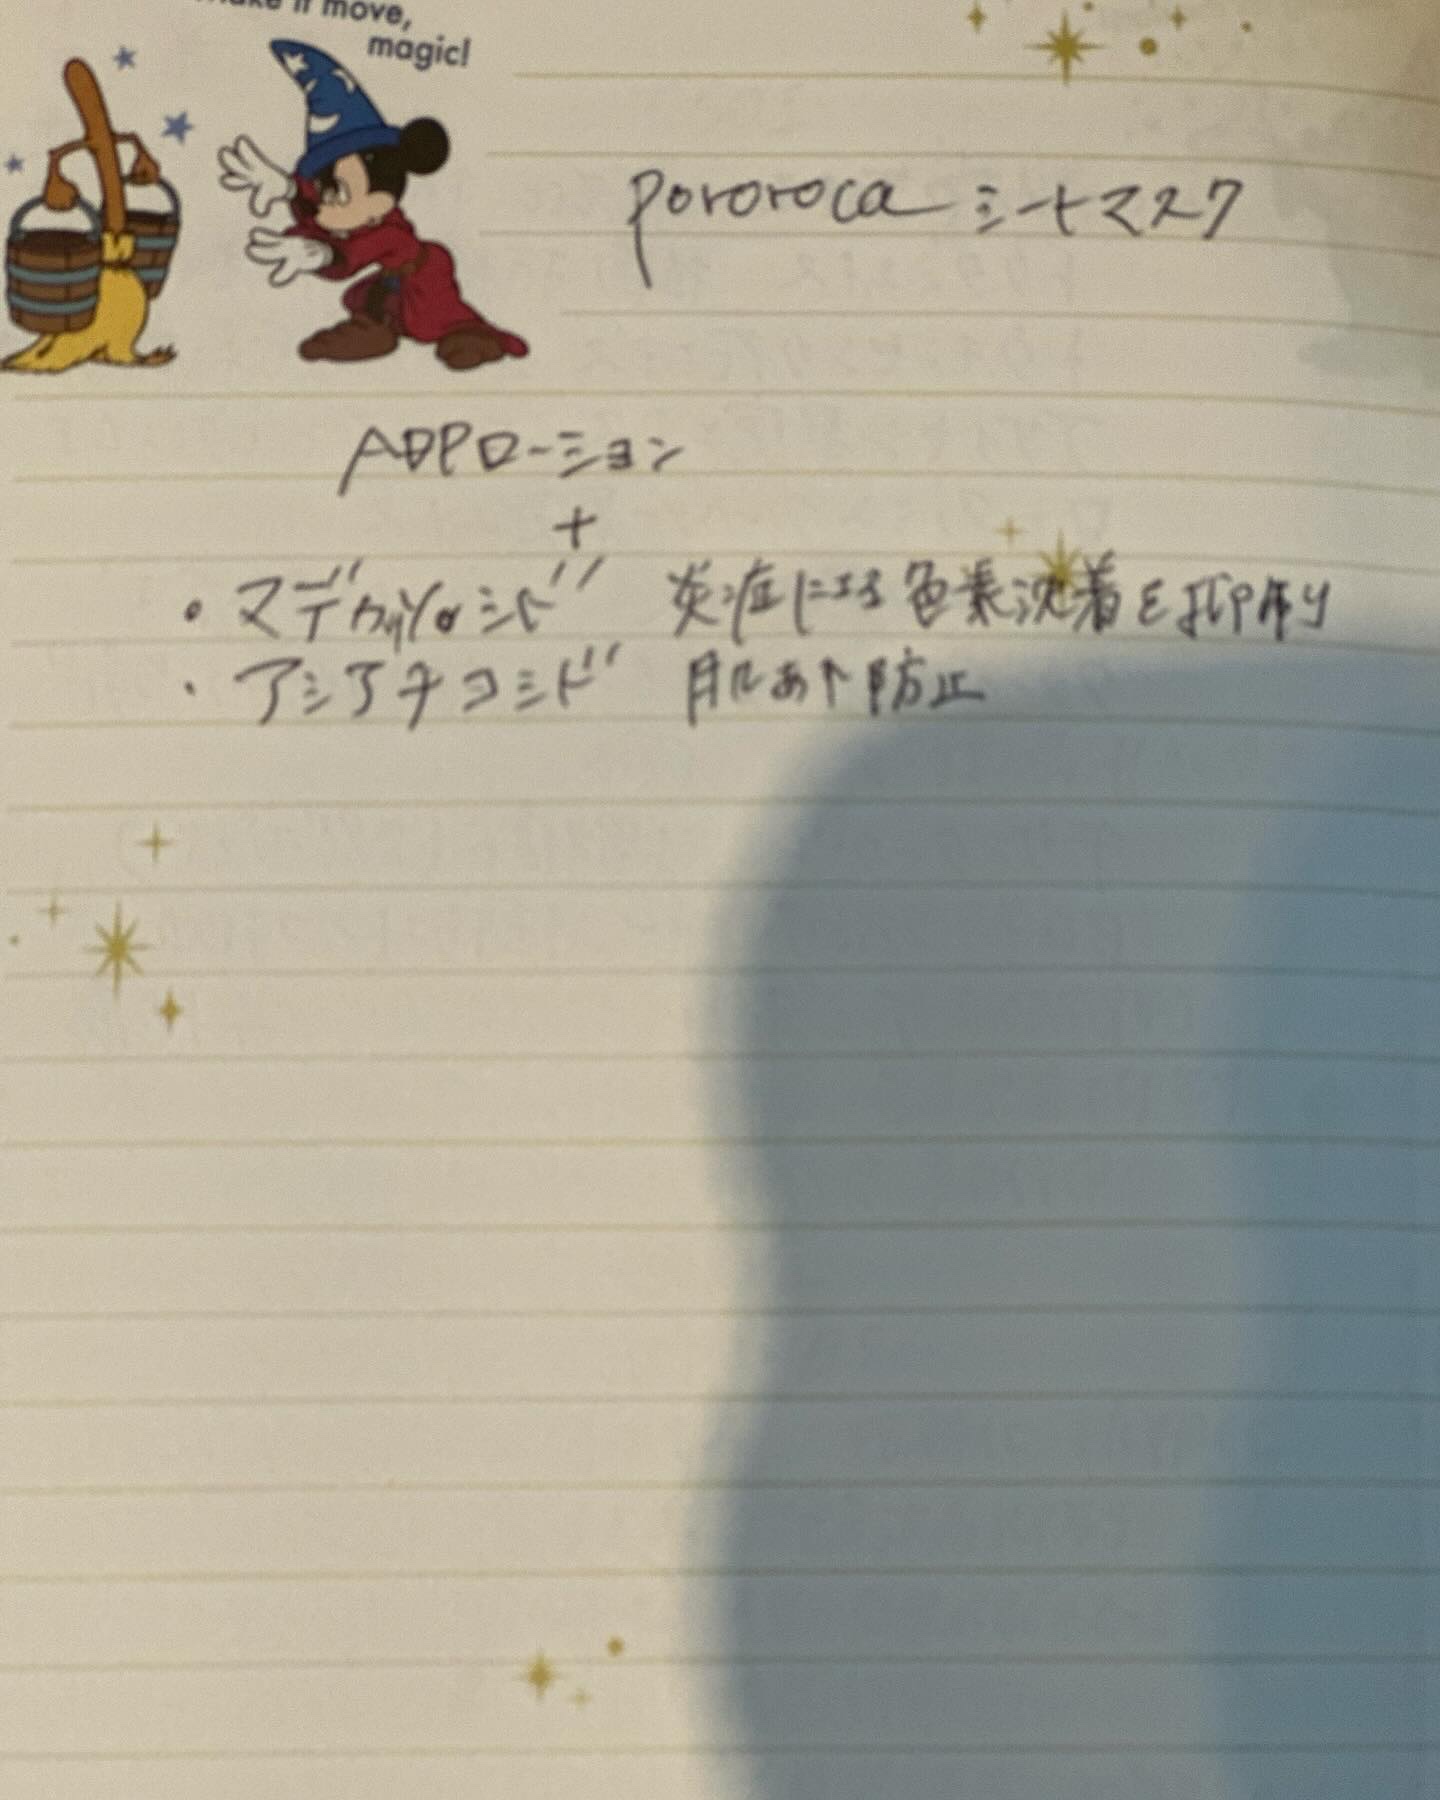 make it move,
magic!
pororoca シートマスク
ADPローション
+
・マデカッソシド 炎症による色素沈着を抑制
・アシアチコシド 肌あれ防止